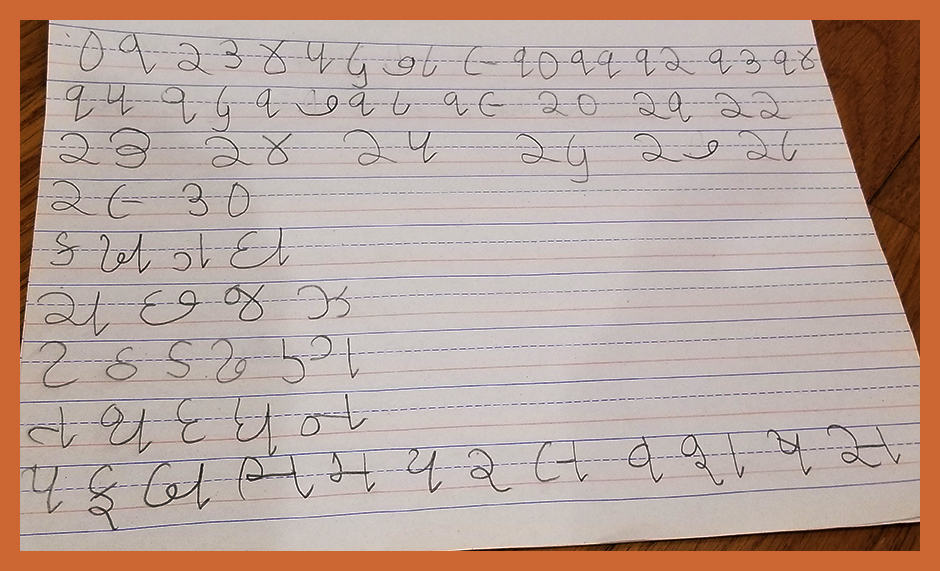 ૦ ૧ ૨ ૩ ૪ ૫ ૬ ૭ ૮ ૯ ૧૦ ૧૧ ૧૨ ૧૩ ૧૪
૧૫ ૧૬ ૧૭ ૧૮ ૧૯ ૨૦ ૨૧ ૨૨
૨૩ ૨૪ ૨૫ ૨૬ ૨૭ ૨૮
૨૯ ૩૦
ક ખ ગ ઘ
ચ છ જ ઝ
ટ ઠ ડ ઢ ણ
ત થ દ ધ ન
પ ફ બ ભ મ ય ર લ વ શ ષ સ